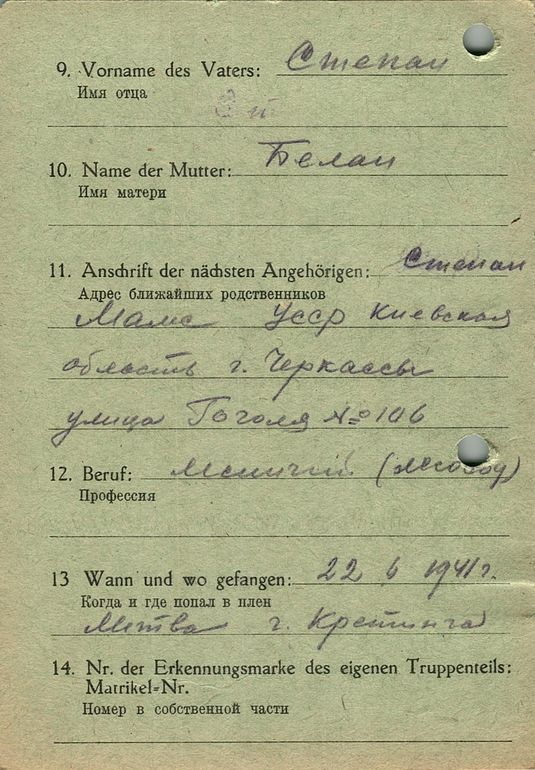 9. Vorname des Vaters: Степан
Имя отца
10. Name der Mutter: Белан
Имя матери
11. Anschrift der nächsten Angehörigen: Степан
Адрес ближайших родственников
УССР Киевская
область г. Черкассы
улица Гоголя № 106
12. Beruf: Лесничий (лесовод)
Профессия
13 Wann und wo gefangen: 22 6 1941 г.
Когда и где попал в плен
Литва г. Кретинга
14. Nr. der Erkennungsmarke des eigenen Truppenteils:
Matrikel-Nr.
Номер в собственной части